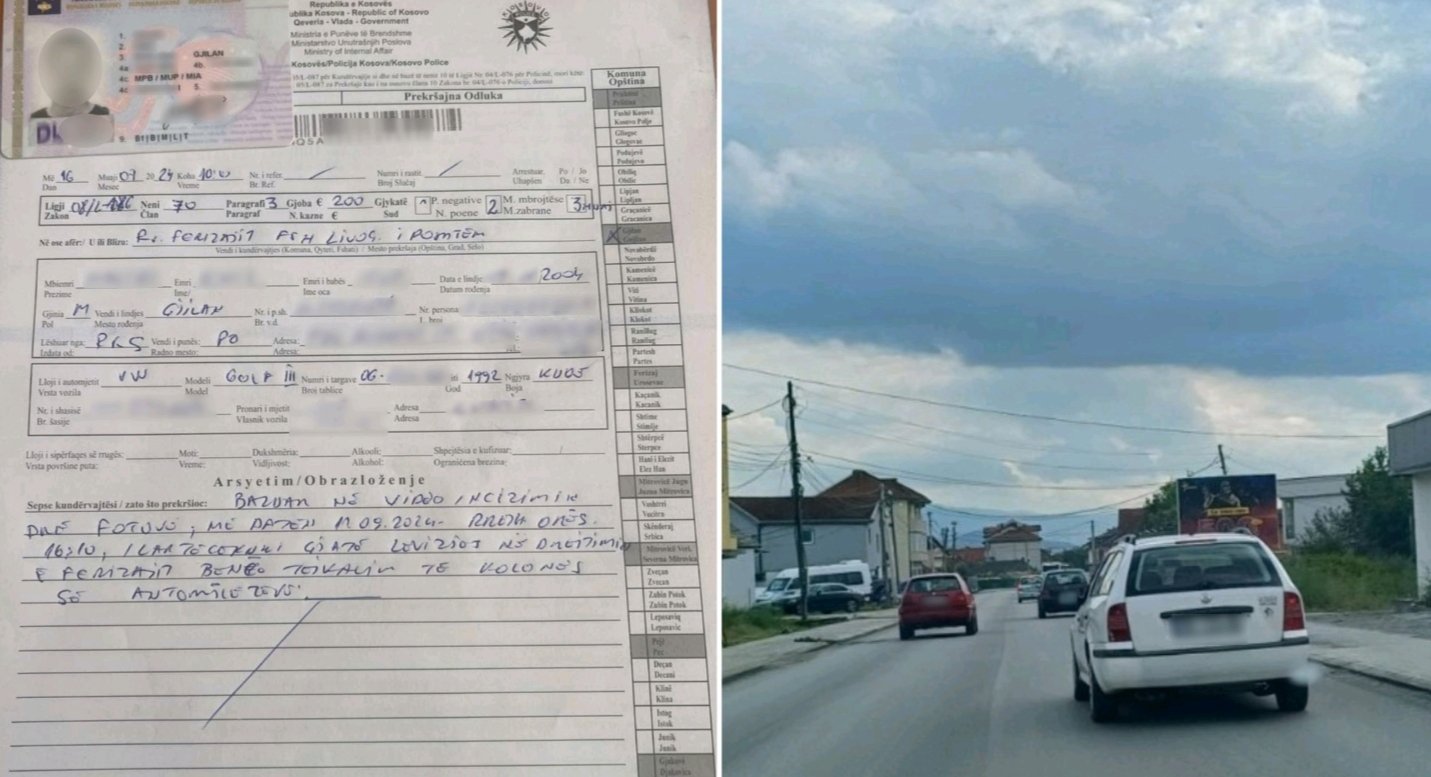 1.
2.
3. GJILAN
4a. 4b.
4c. MPB / MUP / MIA
5.
9. B1|B|M|L|T
Republika e Kosovës
Republika Kosova - Republic of Kosovo
Qeveria - Vlada - Government
Ministria e Punëve të Brendshme
Ministarstvo Unutrašnjih Poslova
Ministry of Internal Affair
Kosovës/Policija Kosova/Kosovo Police
Prekršajna Odluka
Më 16 Muaji 09 20 24 Koha Nr. i refer. Numri i rastit. Arrestuar. Po / Jo
Dan Mesec Vreme Br. Ref. Broj Slučaj Uhapšen Da / Ne
Ligji Neni 70 Paragrafi 3 Gjoba € 200 Gjykatë P. negative 2 M. mbrojtëse 3
Zakon Član Paragraf N. kazne € Sud N. poene M. zabrane
Në ose afër:/ U ili Blizu: Rr. FERIZAJT FSH LIVOQ. I POSHTËM
Vendi i kundërvajtjes (Komuna, Qyteti, Fshati) / Mesto prekršaja (Opština, Grad, Selo)
Mbiemri Emri Emri i babës Data e lindje 2004
Prezime Ime/ Ime oca Datum rođenja
Gjinia M Vendi i lindjes GJILAN Nr. i p.sh. Nr. persona
Pol Mesto rođenja Br. v.d. broj
Lëshuar nga: PKS Vendi i punës: PO Adresa:
Izdata od: Radno mesto: Adresa:
Lloji i automjetit VW Modeli GOLF III Numri i targave 06- iti 1992 Ngjyra KUQE
Vrsta vozila Model Broj tablice God Boja
Nr. i shasisë Pronari i mjetit Adresa
Br. šasije Vlasnik vozila Adresa
Lloji i sipërfaqes së rrugës: Moti: Dukshmëria: Alkooli: Shpejtësia e kufizuar: /
Vrsta površine puta: Vreme: Vidljivost: Alkohol: Ograničena brzina:
Arsyetim/Obrazloženje
Sepse kundërvajtësi / zato što prekršioc: BAZUAR NË VIDEO INCIZIMIN
DHE FOTOVE, ME DATËN 11.09.2024 RRETH ORËS.
16:10, I LARTËCEKURI GJATË LËVIZJES NË DREJTIMIN
E FERIZAJT BENËO TEJKALIM TË KOLONËS
SË AUTOMJETEVE.
Komuna
Opština
Prishtinë
Priština
Fushë Kosovë
Kosovo Polje
Gllogoc
Glogovac
Podujevë
Podujevo
Obiliq
Obilić
Lipjan
Lipljan
Graçanicë
Gracanica
Gjilan
Gnjilane
Novobërdë
Novobrdo
Kamenicë
Kamenica
Viti
Vitina
Kllokot
Klokot
Ranillug
Ranilug
Partesh
Parteš
Ferizaj
Urosevac
Kaçanik
Kacanik
Shtime
Stimlje
Shtërpcë
Sterpce
Hani i Elezit
Elez Han
Mitrovicë Jugu
Juzna Mitrovica
Vushtrri
Vucitrn
Skënderaj
Srbica
Mitrovicë Veri.
Severna Mitrovica
Zveçan
Zvecan
Zubin Potok
Zubin Potok
Leposaviq
Leposavic
Pejë
Pec
Deçan
Decani
Klinë
Klina
Istog
Istok
Junik
Junik
Gjakovë
Djakovica